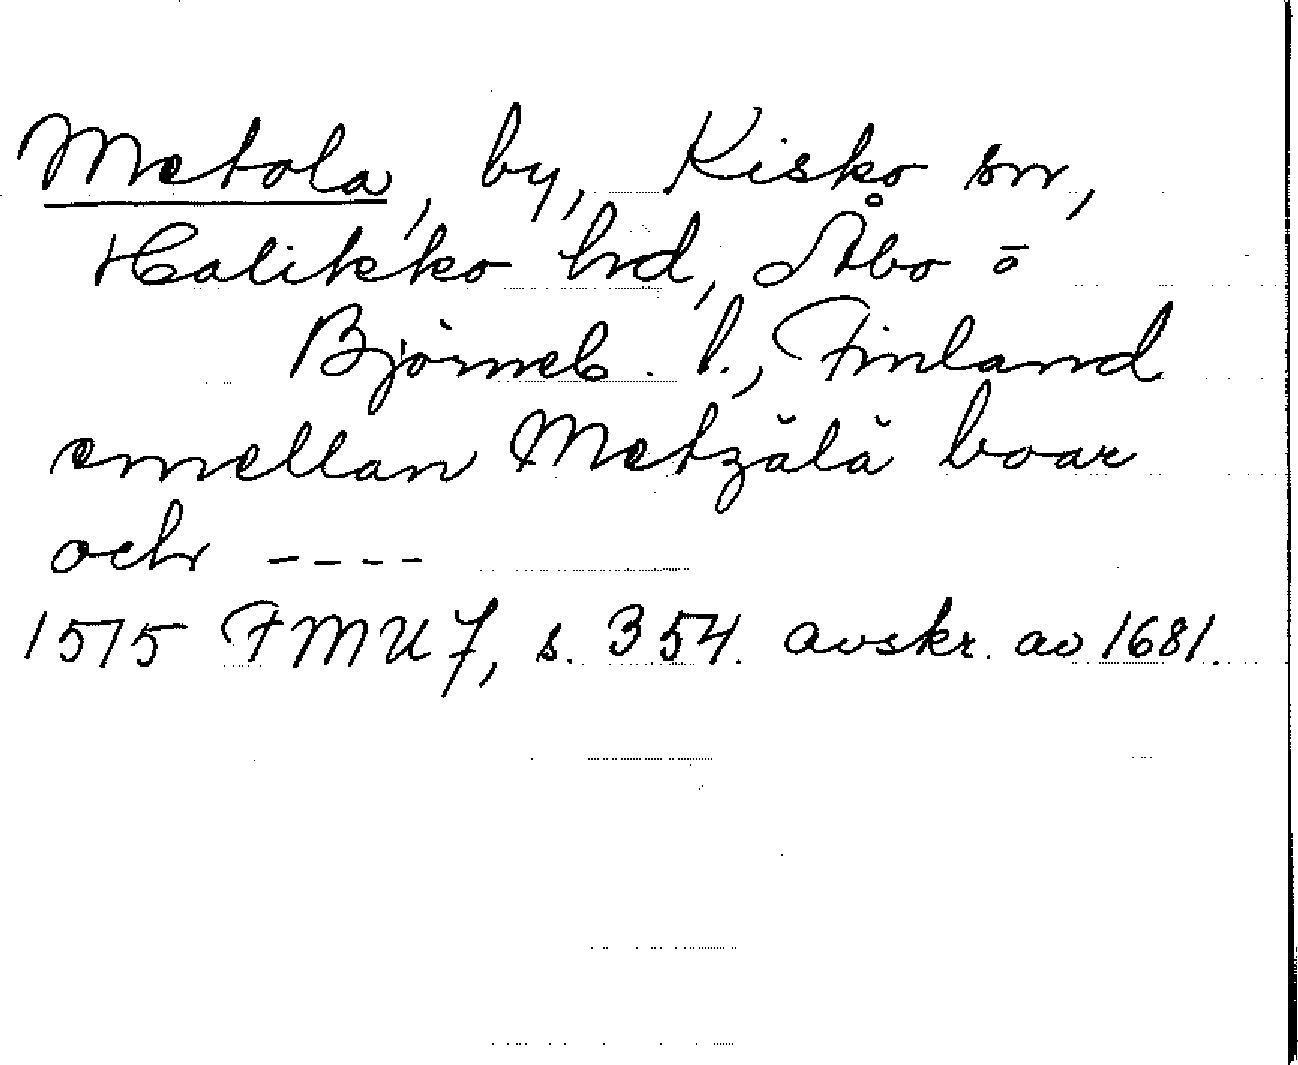 Metola, by, Kisko sn,
Halikko hd, Åbo o
Björneb. l., Finland
emellan Metzälä boar
och ----
1575 FMU 7, s. 354. avskr. av 1681.